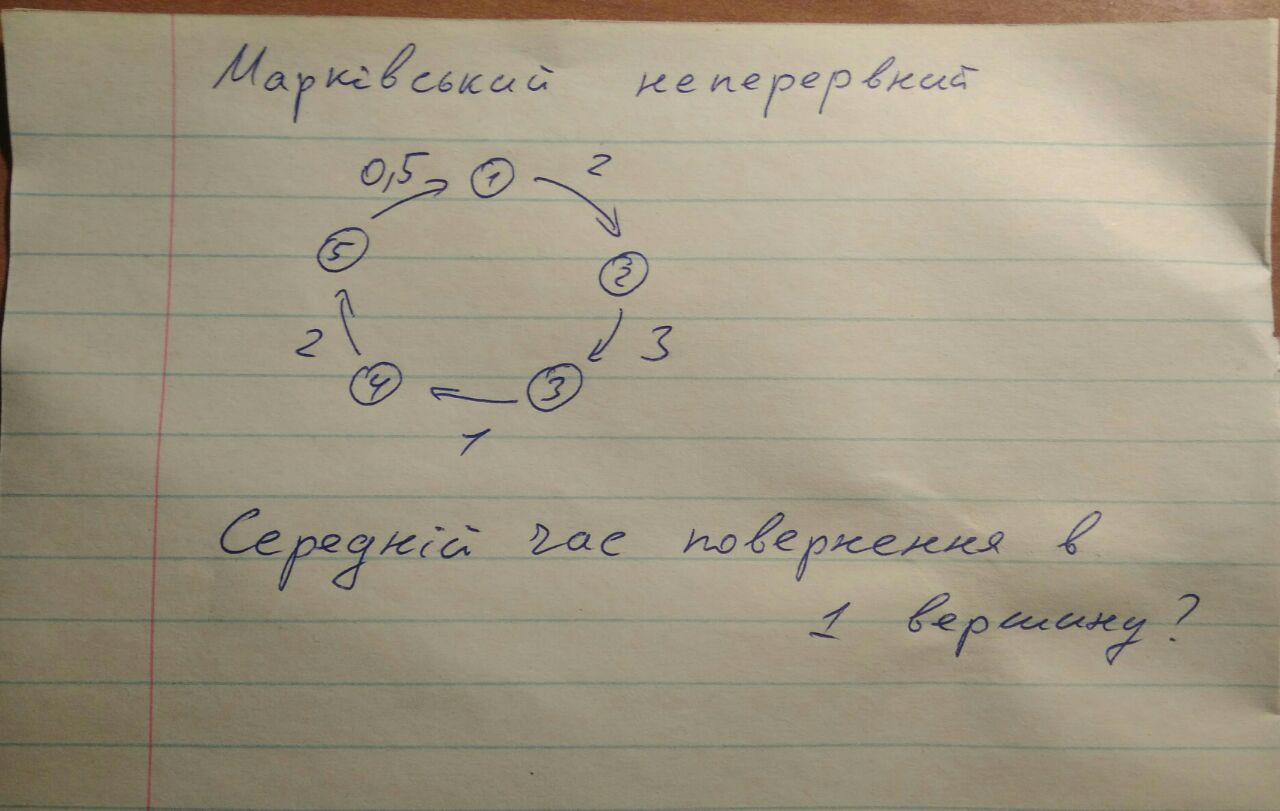 Марківський неперервний
0,5 1 2
5 2
2 3
4 3
1
Середній час повернення в
1 вершину?